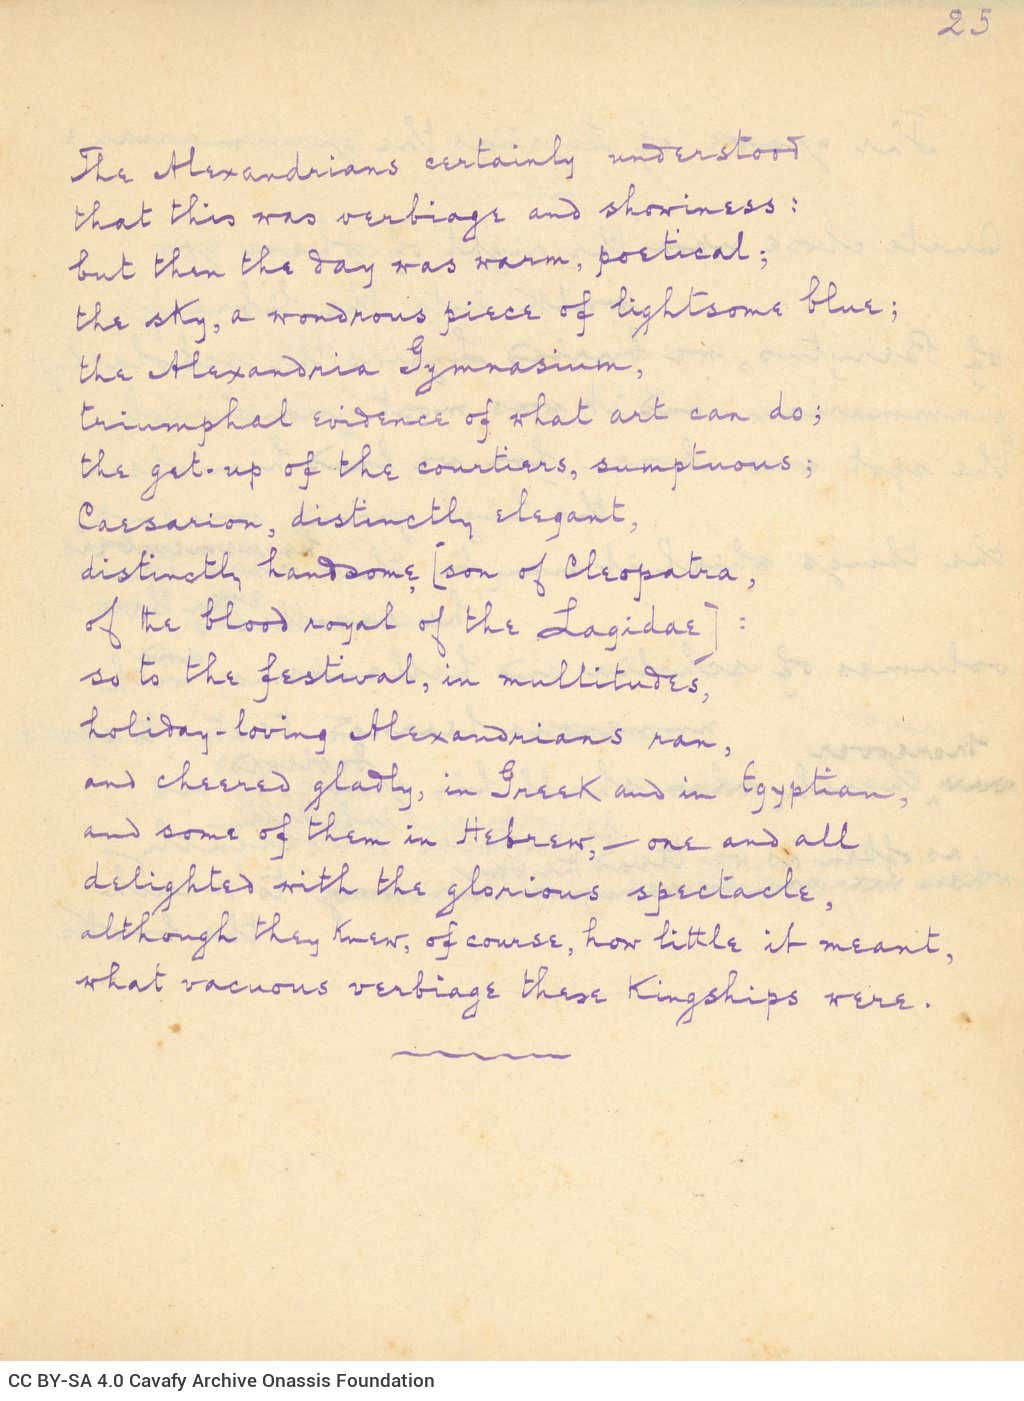 25
The Alexandrians certainly understood
that this was verbiage and showiness:
but then the day was warm, poetical;
the sky, a wondrous piece of lightsome blue;
the Alexandria Gymnasium,
triumphal evidence of what art can do;
the get-up of the courtiers, sumptuous;
Caesarion, distinctly elegant,
distinctly handsome, [son of Cleopatra,
of the blood royal of the Lagidae]:
so to the festival, in multitudes,
holiday-loving Alexandrians ran,
and cheered gladly, in Greek and in Egyptian,
and some of them in Hebrew,—one and all
delighted with the glorious spectacle,
although they knew, of course, how little it meant,
what vacuous verbiage these Kingships were.
CC BY-SA 4.0 Cavafy Archive Onassis Foundation